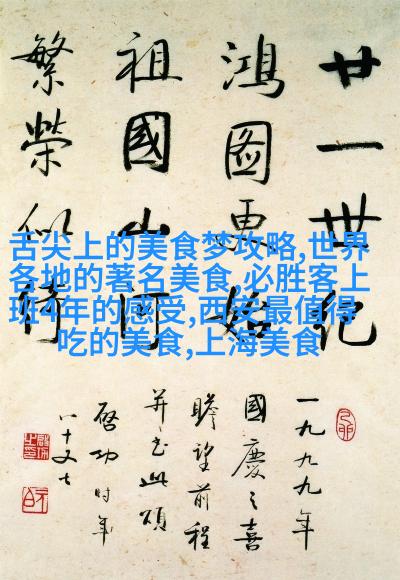 廿一世纪
鴻圖更始
祖國山河
繁榮似
一九九九年
國慶之喜
瞻望前程
并書此頌
啓功时年
八十又七
舌尖上的美食梦攻略,世界
各地的著名美食,必胜客上
班4年的感受,西安最值得
吃的美食,上海美食